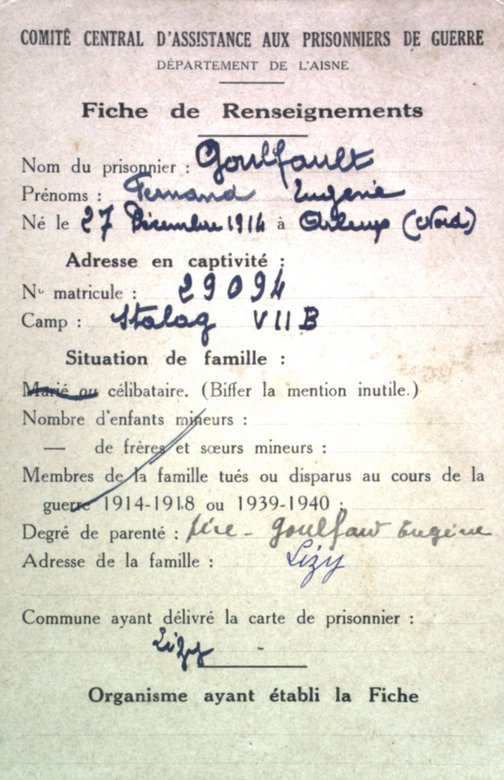 COMITÉ CENTRAL D'ASSISTANCE AUX PRISONNIERS DE GUERRE
DÉPARTEMENT DE L'AISNE
Fiche de Renseignements
Nom du prisonnier : Goulfault
Prénoms : Fernand Eugénie
Né le 27 Décembre 1914 à (Nord)
Adresse en captivité :
N° matricule : 29094
Camp : Stalag VII B
Situation de famille :
Marié ou célibataire. (Biffer la mention inutile.)
Nombre d'enfants mineurs :
— de frères et sœurs mineurs :
Membres de la famille tués ou disparus au cours de la
guerre 1914-1918 ou 1939-1940 :
Degré de parenté : père - Eugène
Adresse de la famille : Lizy
Commune ayant délivré la carte de prisonnier :
Lizy
Organisme ayant établi la Fiche